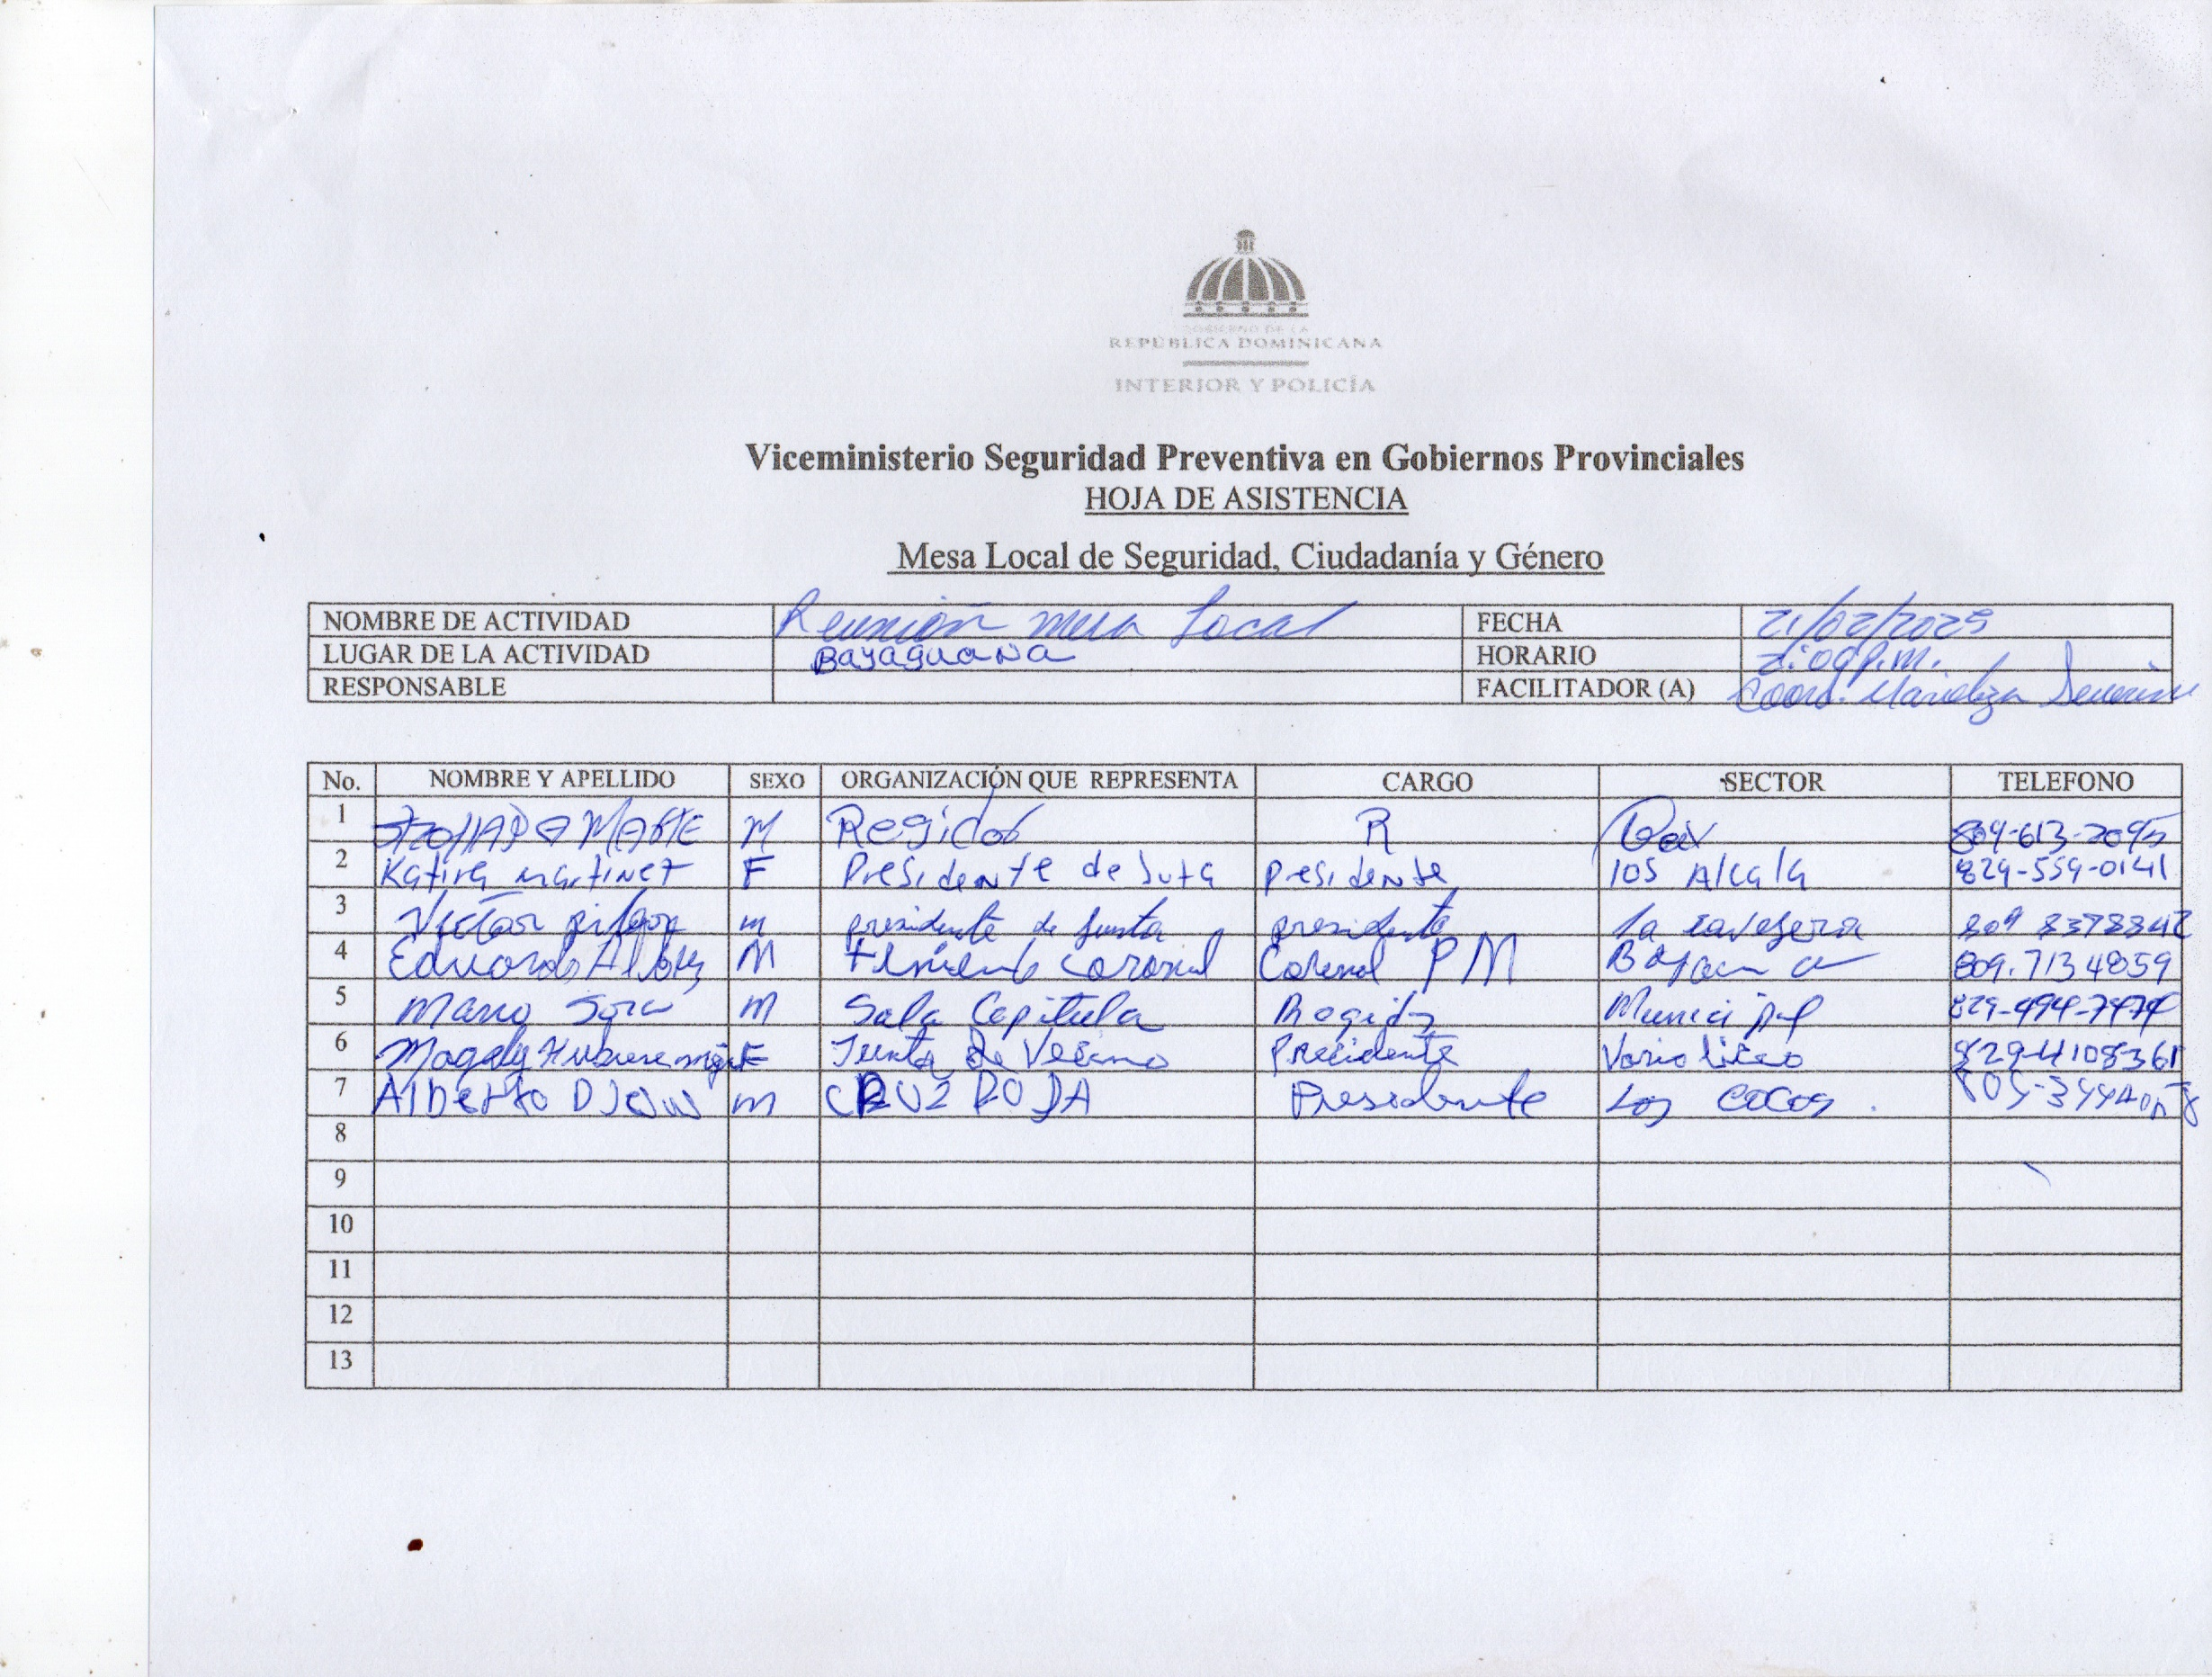 GOBIERNO DE LA
REPÚBLICA DOMINICANA
INTERIOR Y POLICÍA
Viceministerio Seguridad Preventiva en Gobiernos Provinciales
HOJA DE ASISTENCIA
Mesa Local de Seguridad, Ciudadanía y Género
NOMBRE DE ACTIVIDAD Reunión mesa Local FECHA 21/02/2025
LUGAR DE LA ACTIVIDAD Bayaguana HORARIO P.M.
RESPONSABLE FACILITADOR (A) Coord.
No. NOMBRE Y APELLIDO SEXO ORGANIZACIÓN QUE REPRESENTA CARGO SECTOR TELEFONO
1 M Regidor R 809-613-2095
2 Katira martinez F Presidente de Juta presidente los Alcala 829-559-0141
3 Victor m presidente de Junta presidente la 809 8378842
4 Eduardo M coronel Coronel PM 809.7134859
5 M Sala Capitula Regidor Municipal
6 Magaly F Junta de Vecino Precidente 829-4108361
7 Alberto m CRUZ ROJA Presidente Los cocos.
8
9
10
11
12
13